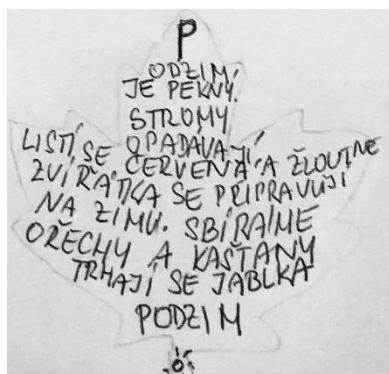 P
ODZIM
JE PĚKNÝ.
STROMY
OPADÁVAJÍ,
LISTÍ SE ČERVENÁ A ŽLOUTNE
ZVÍŘÁTKA SE PŘIPRAVUJÍ
NA ZIMU. SBÍRÁME
OŘECHY A KAŠTANY
TRHAJÍ SE JABLKA
PODZIM